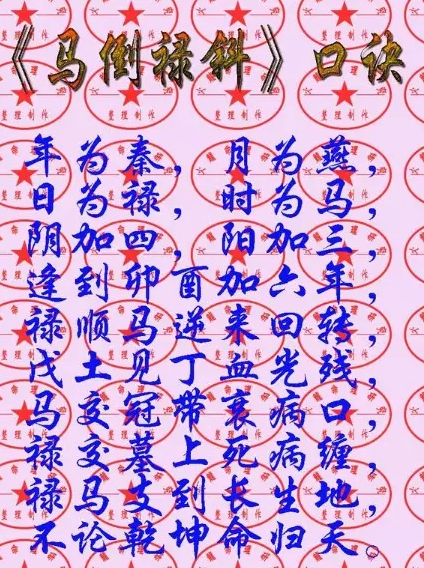 《马倒禄斜》口诀
年为秦，月为燕，
日为禄，时为马，
阴加四，阳加三，
逢到卯酉加六年，
禄顺马逆来回转，
戊土见丁血光残，
马交冠带衰病口，
禄交墓上死病缠，
禄马支到长生地，
不论乾坤命归天。